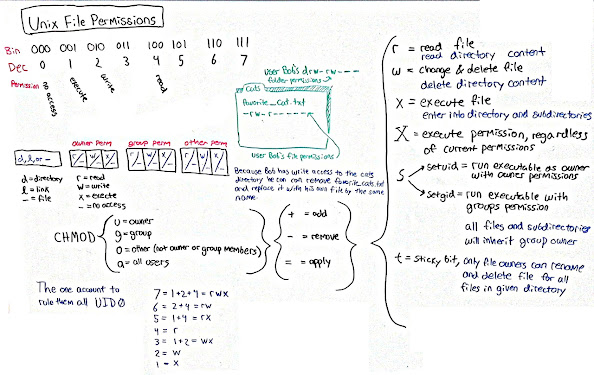 Unix File Permissions
Bin 000 001 010 011 100 101 110 111
Dec 0 1 2 3 4 5 6 7
Permission no access execute write read
owner perm group perm other perm
d, l, or - r/- w/- x/- r/- w/- x/- r/- w/- x/-
d = directory
l = link
- = file
r = read
w = write
x = execte
- = no access
user Bob's drw-rw----
folder permissions
Cats
favorite_cat.txt
-rw-r-----
user Bob's file permissions
Because Bob has write access to the cats
directory he can remove favorite_cat.txt
and replace it with his own file by the same
name.
CHMOD
u = owner
g = group
o = other (not owner or group members)
a = all users
+ = add
- = remove
= = apply
r = read file
read directory content
w = change & delete file
delete directory content
x = execute file
enter into directory and subdirectories
X = execute permission, regardless
of current permissions
s
setuid = run executable as owner
with owner permissions
setgid = run executable with
groups permission
all files and subdirectories
will inherit group owner
t = sticky bit, only file owners can rename
and delete file for all
files in given directory
The one account to
rule them all UID 0
7 = 1+2+4 = rwx
6 = 2+4 = rw
5 = 1+4 = rx
4 = r
3 = 1+2 = wx
2 = w
1 = x